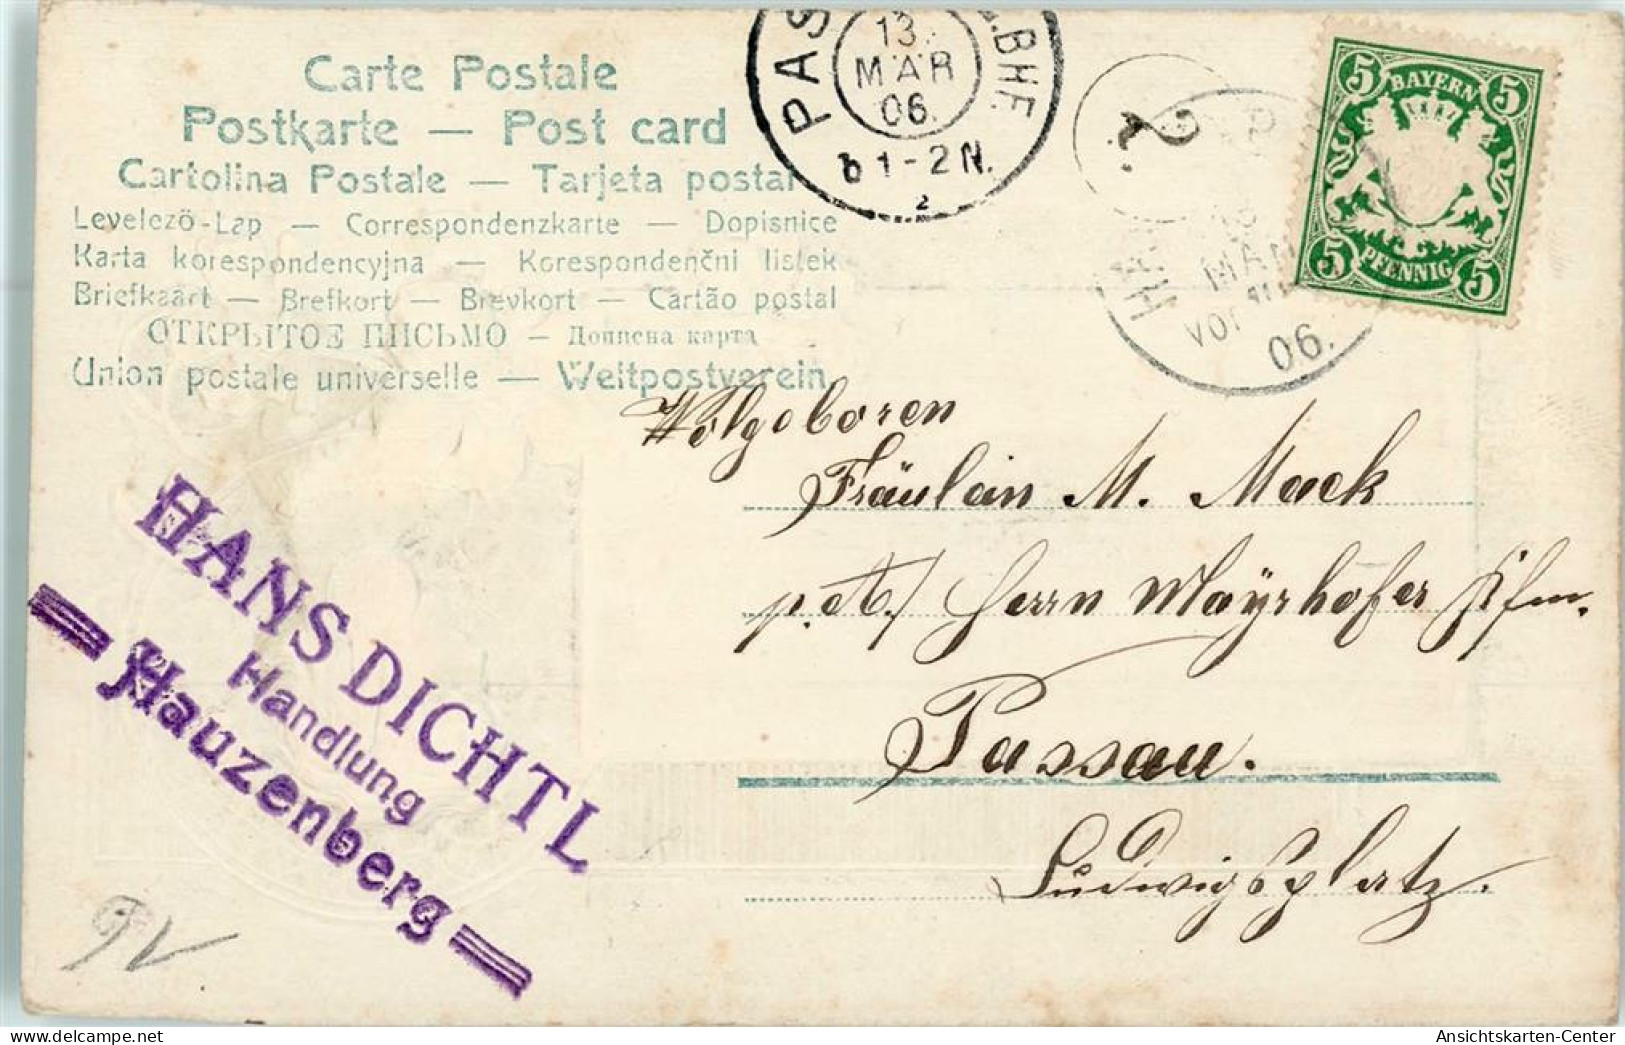 Carte Postale
Postkarte — Post card
Cartolina Postale — Tarjeta postal
Levelező-Lap — Correspondenzkarte — Dopisnice
Karta korespondencyjna — Korespondenční lístek
Briefkaart — Brefkort — Brevkort — Cartão postal
ОТКРЫТОЕ ПИСЬМО — Дописна карта
Union postale universelle — Weltpostverein
PAS .BHF.
13.
MAR
06.
b 1-2 N.
2
2.
MAR
VOR
06.
BAYERN
5 5
5 5
PFENNIG
Wolgeboren
Fräulein M. Mack
Herrn Mayrhofer Kfm.
Passau.
Ludwigsplatz.
HANS DICHTL
Handlung
Hauzenberg
Ansichtskarten-Center